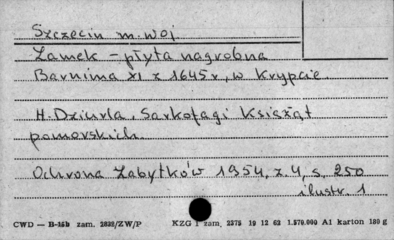 Szczecin m. woj.
Zamek – płyta nagrobna
Barnima XI z 1645 r, w Krypcie.
H. Dziurla, Sarkofagi Książąt
pomorskich.
Ochrona Zabytków 1954, z 4, s. 250
ilustr 1
CWD — B-15b zam. 2889/ZW/P KZG 1 zam. 2375 19 12 63 1.570.000 A1 karton 180 g